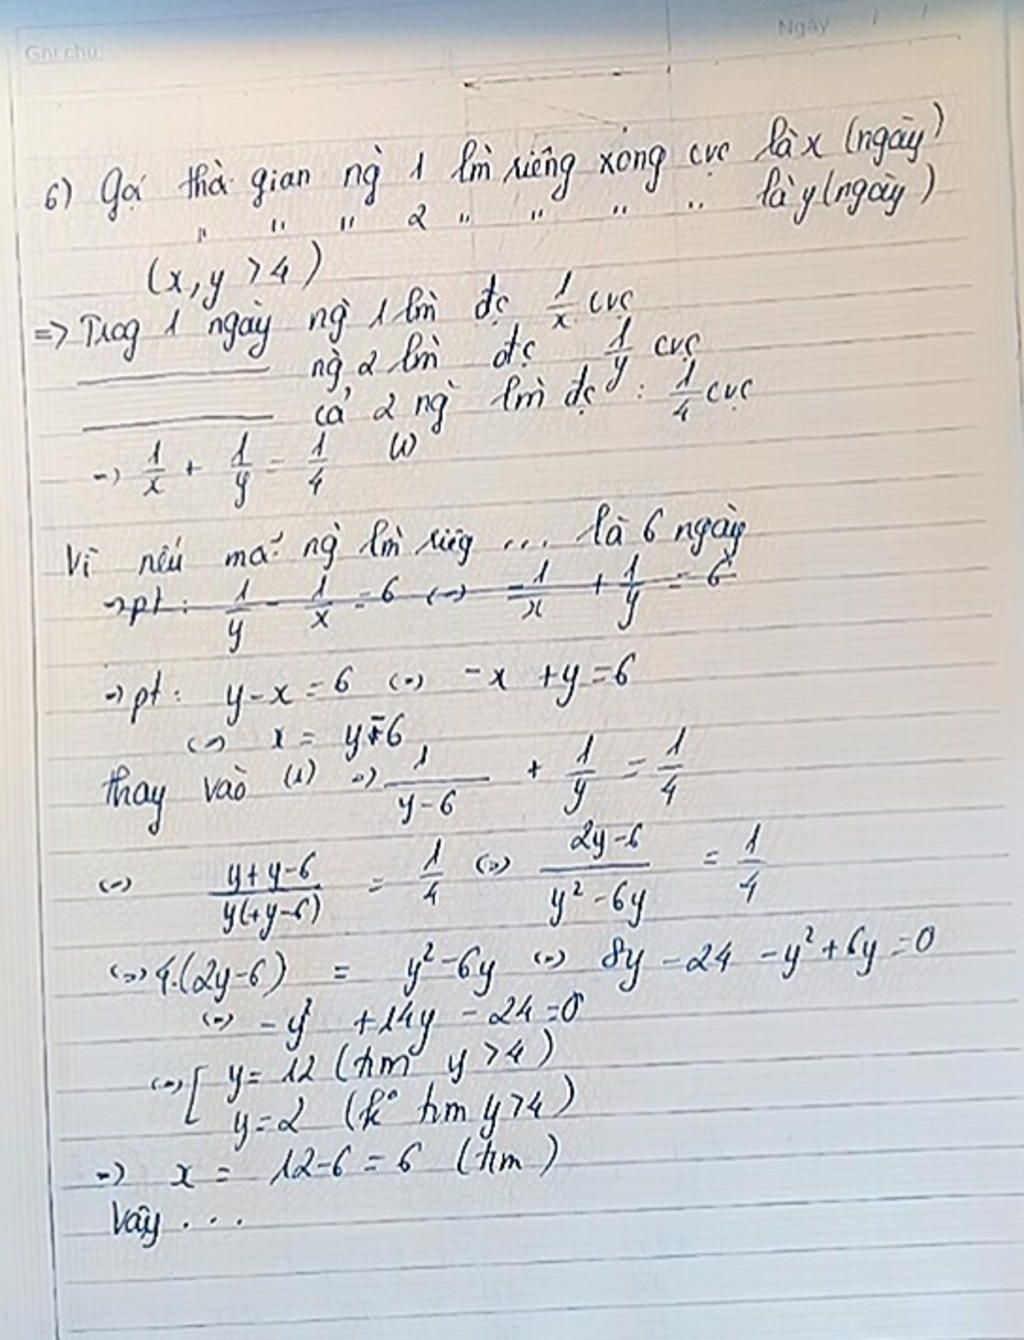 Ghi chú:
Ngày / /
6) Gọi thời gian ng` 1 lm` riêng xong cvc là x (ngày)
" " " 2 " " " " là y (ngày)
(x, y > 4)
=> Trog 1 ngày ng` 1 lm` đc 1/x cvc
_____ ng` 2 lm` đc 1/y cvc
_____ cả 2 ng` lm` đc : 1/4 cvc
=> 1/x + 1/y = 1/4 (1)
Vì nếu mỗi ng` lm` riêg ... là 6 ngày
=> pt : 1/y - 1/x = 6 <=> -1/x + 1/y = 6
=> pt : y - x = 6 <=> -x + y = 6
<=> x = y - 6
thay vào (1) => 1/(y-6) + 1/y = 1/4
<=> (y+y-6)/(y(+y-6)) = 1/4 <=> (2y-6)/(y² - 6y) = 1/4
<=> 4.(2y-6) = y² - 6y <=> 8y - 24 - y² + 6y = 0
<=> -y² + 14y - 24 = 0
<=> [ y = 12 (tm y > 4)
y = 2 (k° tm y > 4)
=> x = 12 - 6 = 6 (tm)
Vậy ...